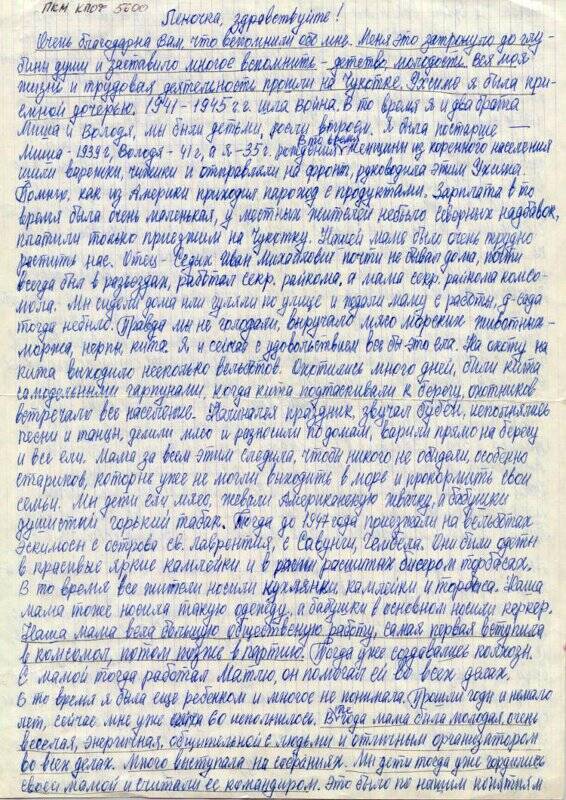 ПКМ КПОФ 5600
Леночка, здравствуйте!
Очень благодарна Вам, что вспомнили обо мне. Меня это затронуло до глу-
бины души и заставило многое вспомнить - детство, молодость. Вся моя
жизнь и трудовая деятельность прошли на Чукотке. Уксиме я была при-
ёмной дочерью. 1941-1945 г.г. шла война. В то время я и два брата
Миша и Володя, мы были детьми, росли втроём. Я была постарше —
Миша - 1939 г, Володя - 41 г, а я - 35 г. рождения. В то время женщины из коренного населения
шили варежки, чижики и отправляли на фронт, руководила этим Уксима.
Помню, как из Америки приходил пароход с продуктами. Зарплата в то
время была очень маленькая, у местных жителей небыло северных надбавок,
платили только приезжим на Чукотку. Нашей маме было очень трудно
растить нас. Отец - Седых Иван Михайлович почти не бывал дома, почти
всегда был в разъездах, работал секр. райкома, а мама секр. райкома комсо-
мола. Мы сидели дома или гуляли по улице и ждали маму с работы, д-сада
тогда небыло. Правда мы не голодали, выручало мясо морских животных-
моржа, нерпы, кита. Я и сейчас с удовольствием все бы это ела. На охоту на
кита выходило несколько вельботов. Охотились много дней, били кита
самодельными гарпунами, когда кита подтаскивали к берегу, охотников
встречало все население. Начинался праздник, звучал бубен, исполнялись
песни и танцы, делили мясо и разносили по домам, варили прямо на берегу
и все ели. Мама за всем этим следила, чтобы никого не обидели, особенно
стариков, которые уже не могли выходить в море и прокормить свои
семьи. Мы дети ели мясо, жевали Американскую жвачку, а бабушки
душистый горький табак. Тогда до 1947 года приезжали на вельботах
Эскимосы с острова св. Лаврентия, с Савунги, Гембела. Они были одеты
в красивые яркие камлейки и в расшитых бисером торбасах.
В то время все жители носили кухлянки, камлейки и торбаса. Наша
мама тоже носила такую одежду, а бабушки в основном носили керкер.
Наша мама вела большую общественную работу, самая первая вступила
в комсомол, потом позже в партию. Тогда уже создавались колхозы.
С мамой тогда работал Матлю, он помогал ей во всех делах.
В то время я была еще ребенком и многое не понимала. Прошли годы и немало
лет, сейчас мне уже исполнилось. В те года мама была молодая, очень
веселая, энергичная, общительной с людьми и отличным организатором
во всех делах. Много выступала на собраниях. Мы дети тогда уже гордились
своей мамой и считали ее командиром. Это было по нашим понятиям